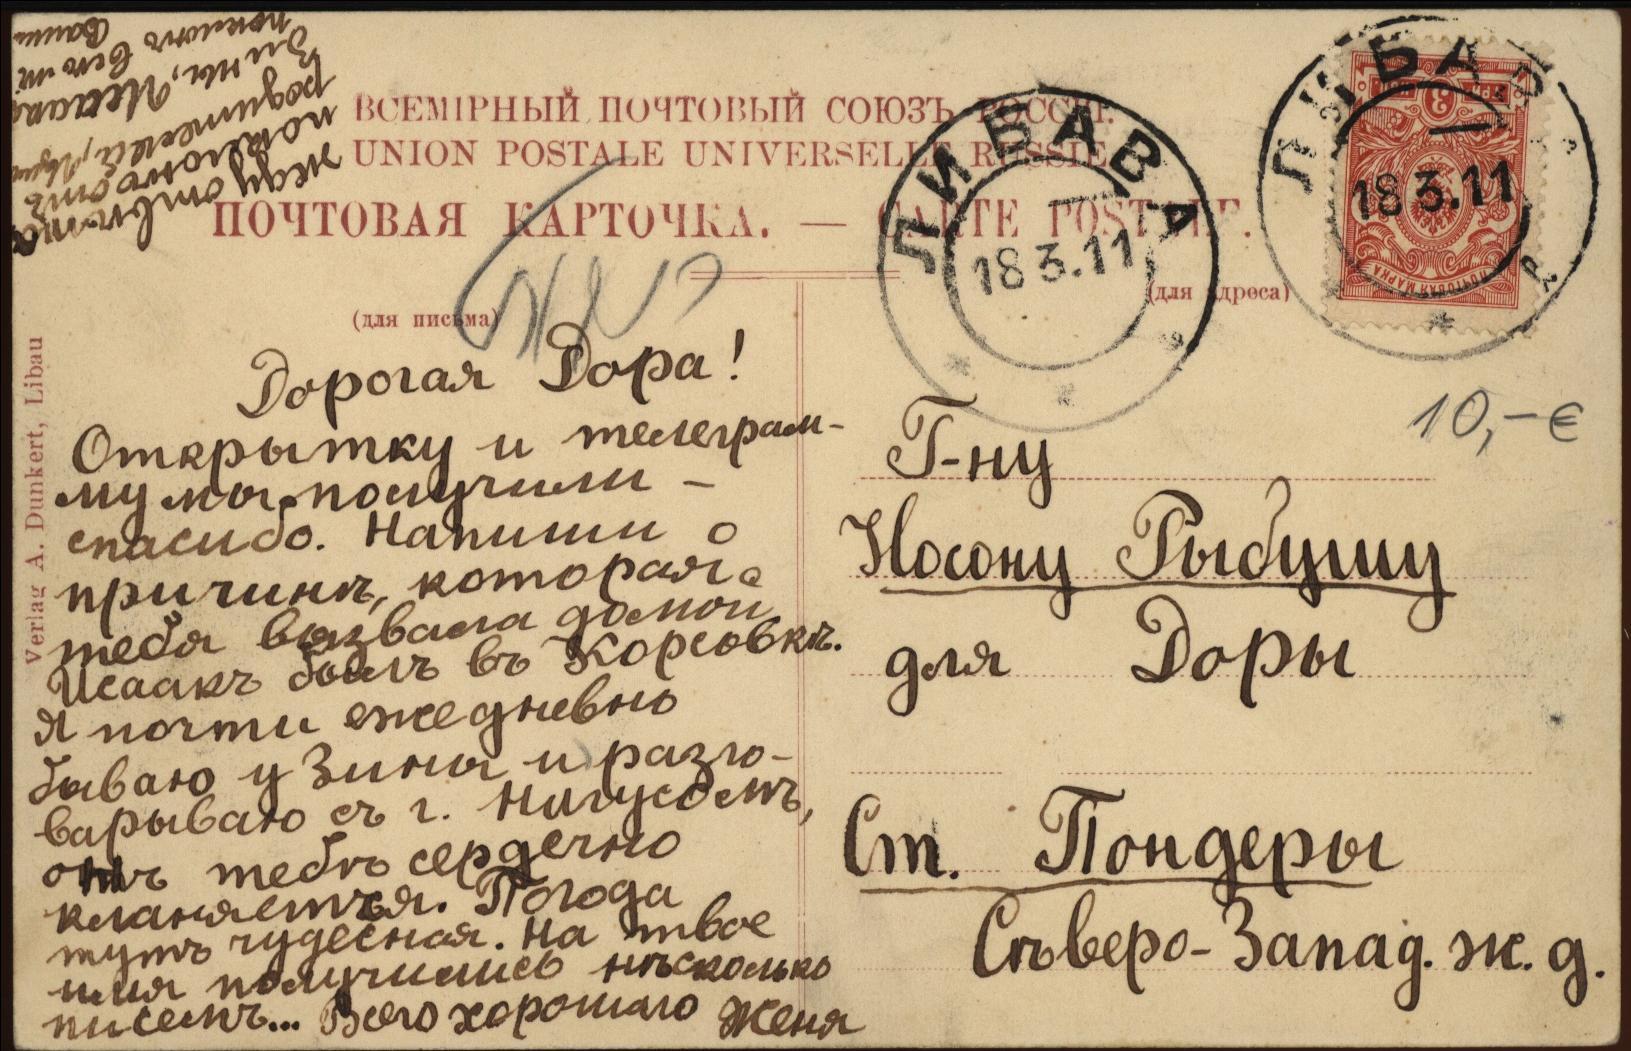 ВСЕМІРНЫЙ ПОЧТОВЫЙ СОЮЗЪ РОССІЯ.
UNION POSTALE UNIVERSELLE RUSSIE
ПОЧТОВАЯ КАРТОЧКА. — CARTE POSTALE.
(для письма)
(для адреса)
ЛИБАВА
18 3.11
ЛИБАВА
18 3.11
ПОЧТОВАЯ МАРКА
10,-€
Verlag A. Dunkert, Libau
Дорогая Дора!
Открытку и телеграм-
му мы получили –
спасибо. Напиши о
причинѣ, которая
тебя вызвала домой
Исаакъ былъ въ Корсовкѣ.
Я почти ежедневно
бываю у Зины и разго-
варываю съ г.
онъ тебѣ сердечно
кланяется. Погода
тутъ чудесная. На твое
имя получились нѣсколько
писемъ... Всего хорошаго Женя
Жду отвѣта
поклонъ отъ
родителей,
Зины, Исаака
поклонъ всѣмъ
Вашимъ
Г-ну
Носону Рыбушу
для Доры
Ст. Пондеры
Сѣверо-Запад. ж. д.